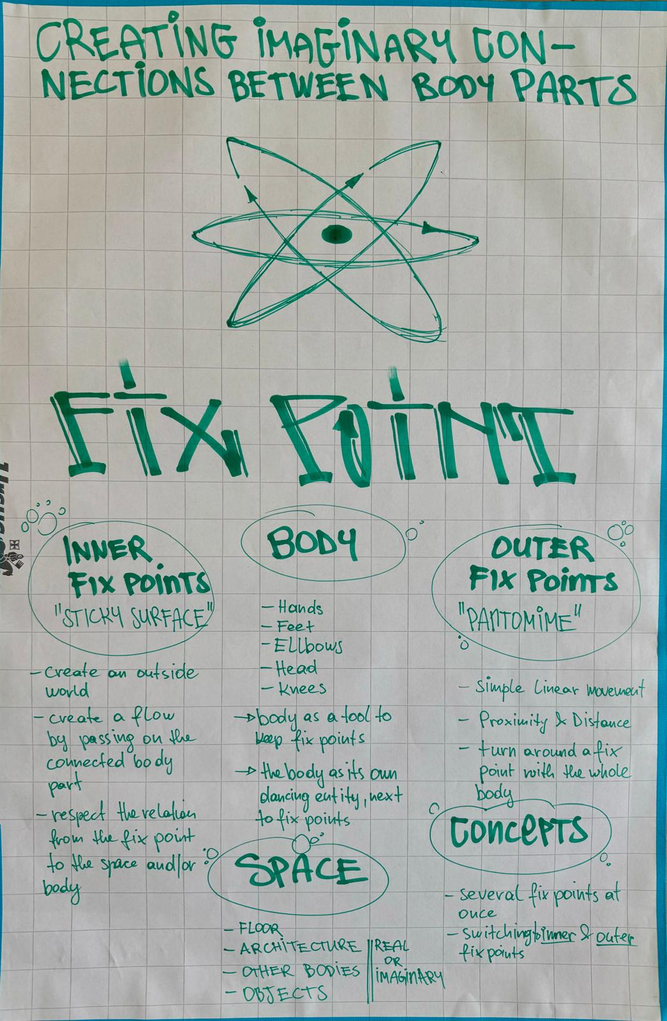 CREATING IMAGINARY CON-
NECTIONS BETWEEN BODY PARTS
FIX POINT
INNER
FIX POINTS
"STICKY SURFACE"
- Create an outside
world
- create a flow
by passing on the
connected body
part
- respect the relation
from the fix point
to the space and/or
body
BODY
- Hands
- Feet
- Ellbows
- Head
- Knees
→ body as a tool to
keep fix points
→ the body as its own
dancing entity, next
to fix points
OUTER
FIX POINTS
"PANTOMIME"
- Simple linear movement
- Proximity & Distance
- turn around a fix
point with the whole
body
SPACE
- FLOOR
- ARCHITECTURE
- OTHER BODIES
- OBJECTS
REAL
OR
IMAGINARY
CONCEPTS
- several fix points at
once
- switching inner & outer
fix points